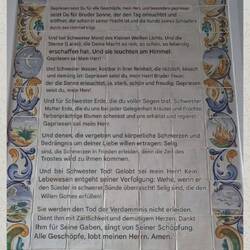 Gepriesen seist Du für alle Deine Geschöpfe, mein Herr, und besonders gepriesen
seist Du für Bruder Sonne, der den Tag erleuchtet und
eröffnet, der schön in seiner Pracht ist und die Kunde seines Schöpfers
durch das Himmelszelt trägt.
Und bei Schwester Mond des Kleinen Weißen Lichts. Und die
Sterne (Laren), die Deine Macht so rein, so schön, so lebendig
erschaffen hat. Und sie leuchten am Himmel.
Gepriesen sei Mein Herr!
Und Schwester Wasser, kostbar in ihrer Reinheit, die nützlich, keusch
und demütig ist. Gepriesen seist du, mein Herr! Bruder Feuer,
der die Sonne erleuchtet, ist stark, schön und freudig. Gepriesen
seist du, mein Herr.
Und für Schwester Erde, die du voller Segen trat. Schwester
Mutter Erde, die du uns bei jeder Gelegenheit Kräuter und Früchte
farbenprächtige Blumen schenkst und uns erhältst und regierst
Gepriesen sei mein Herr!
Und denen, die vergeben und körperliche Schmerzen und
Bedrängnis um deiner Liebe willen ertragen. Selig
sind, die Schmerzen in Frieden erleiden, denn die Zeit des
Trostes wird zu ihnen kommen.
Und bei Schwester Tod! Gelobt sei mein Herr! Kein
Lebewesen entgeht seiner Verfolgung. Wehe, wenn er
den Sünder in schwerer Sünde überrascht! Selig sind, die den
Willen Gottes erfüllen!
Sie werden den Tod der Verdammnis nicht erleiden.
Dient ihm mit Zärtlichkeit und demütigem Herzen. Dankt
Ihm für Seine Gaben, singt von Seiner Schöpfung.
Alle Geschöpfe, lobt meinen Herrn. Amen.